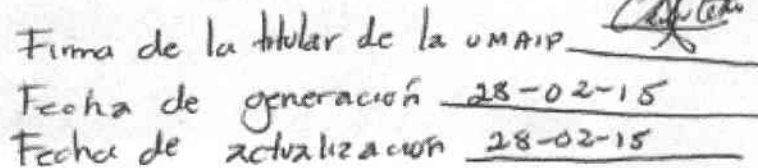 Firma de la titular de la UMAIP
Fecha de generación 28-02-15
Fecha de actualización 28-02-15